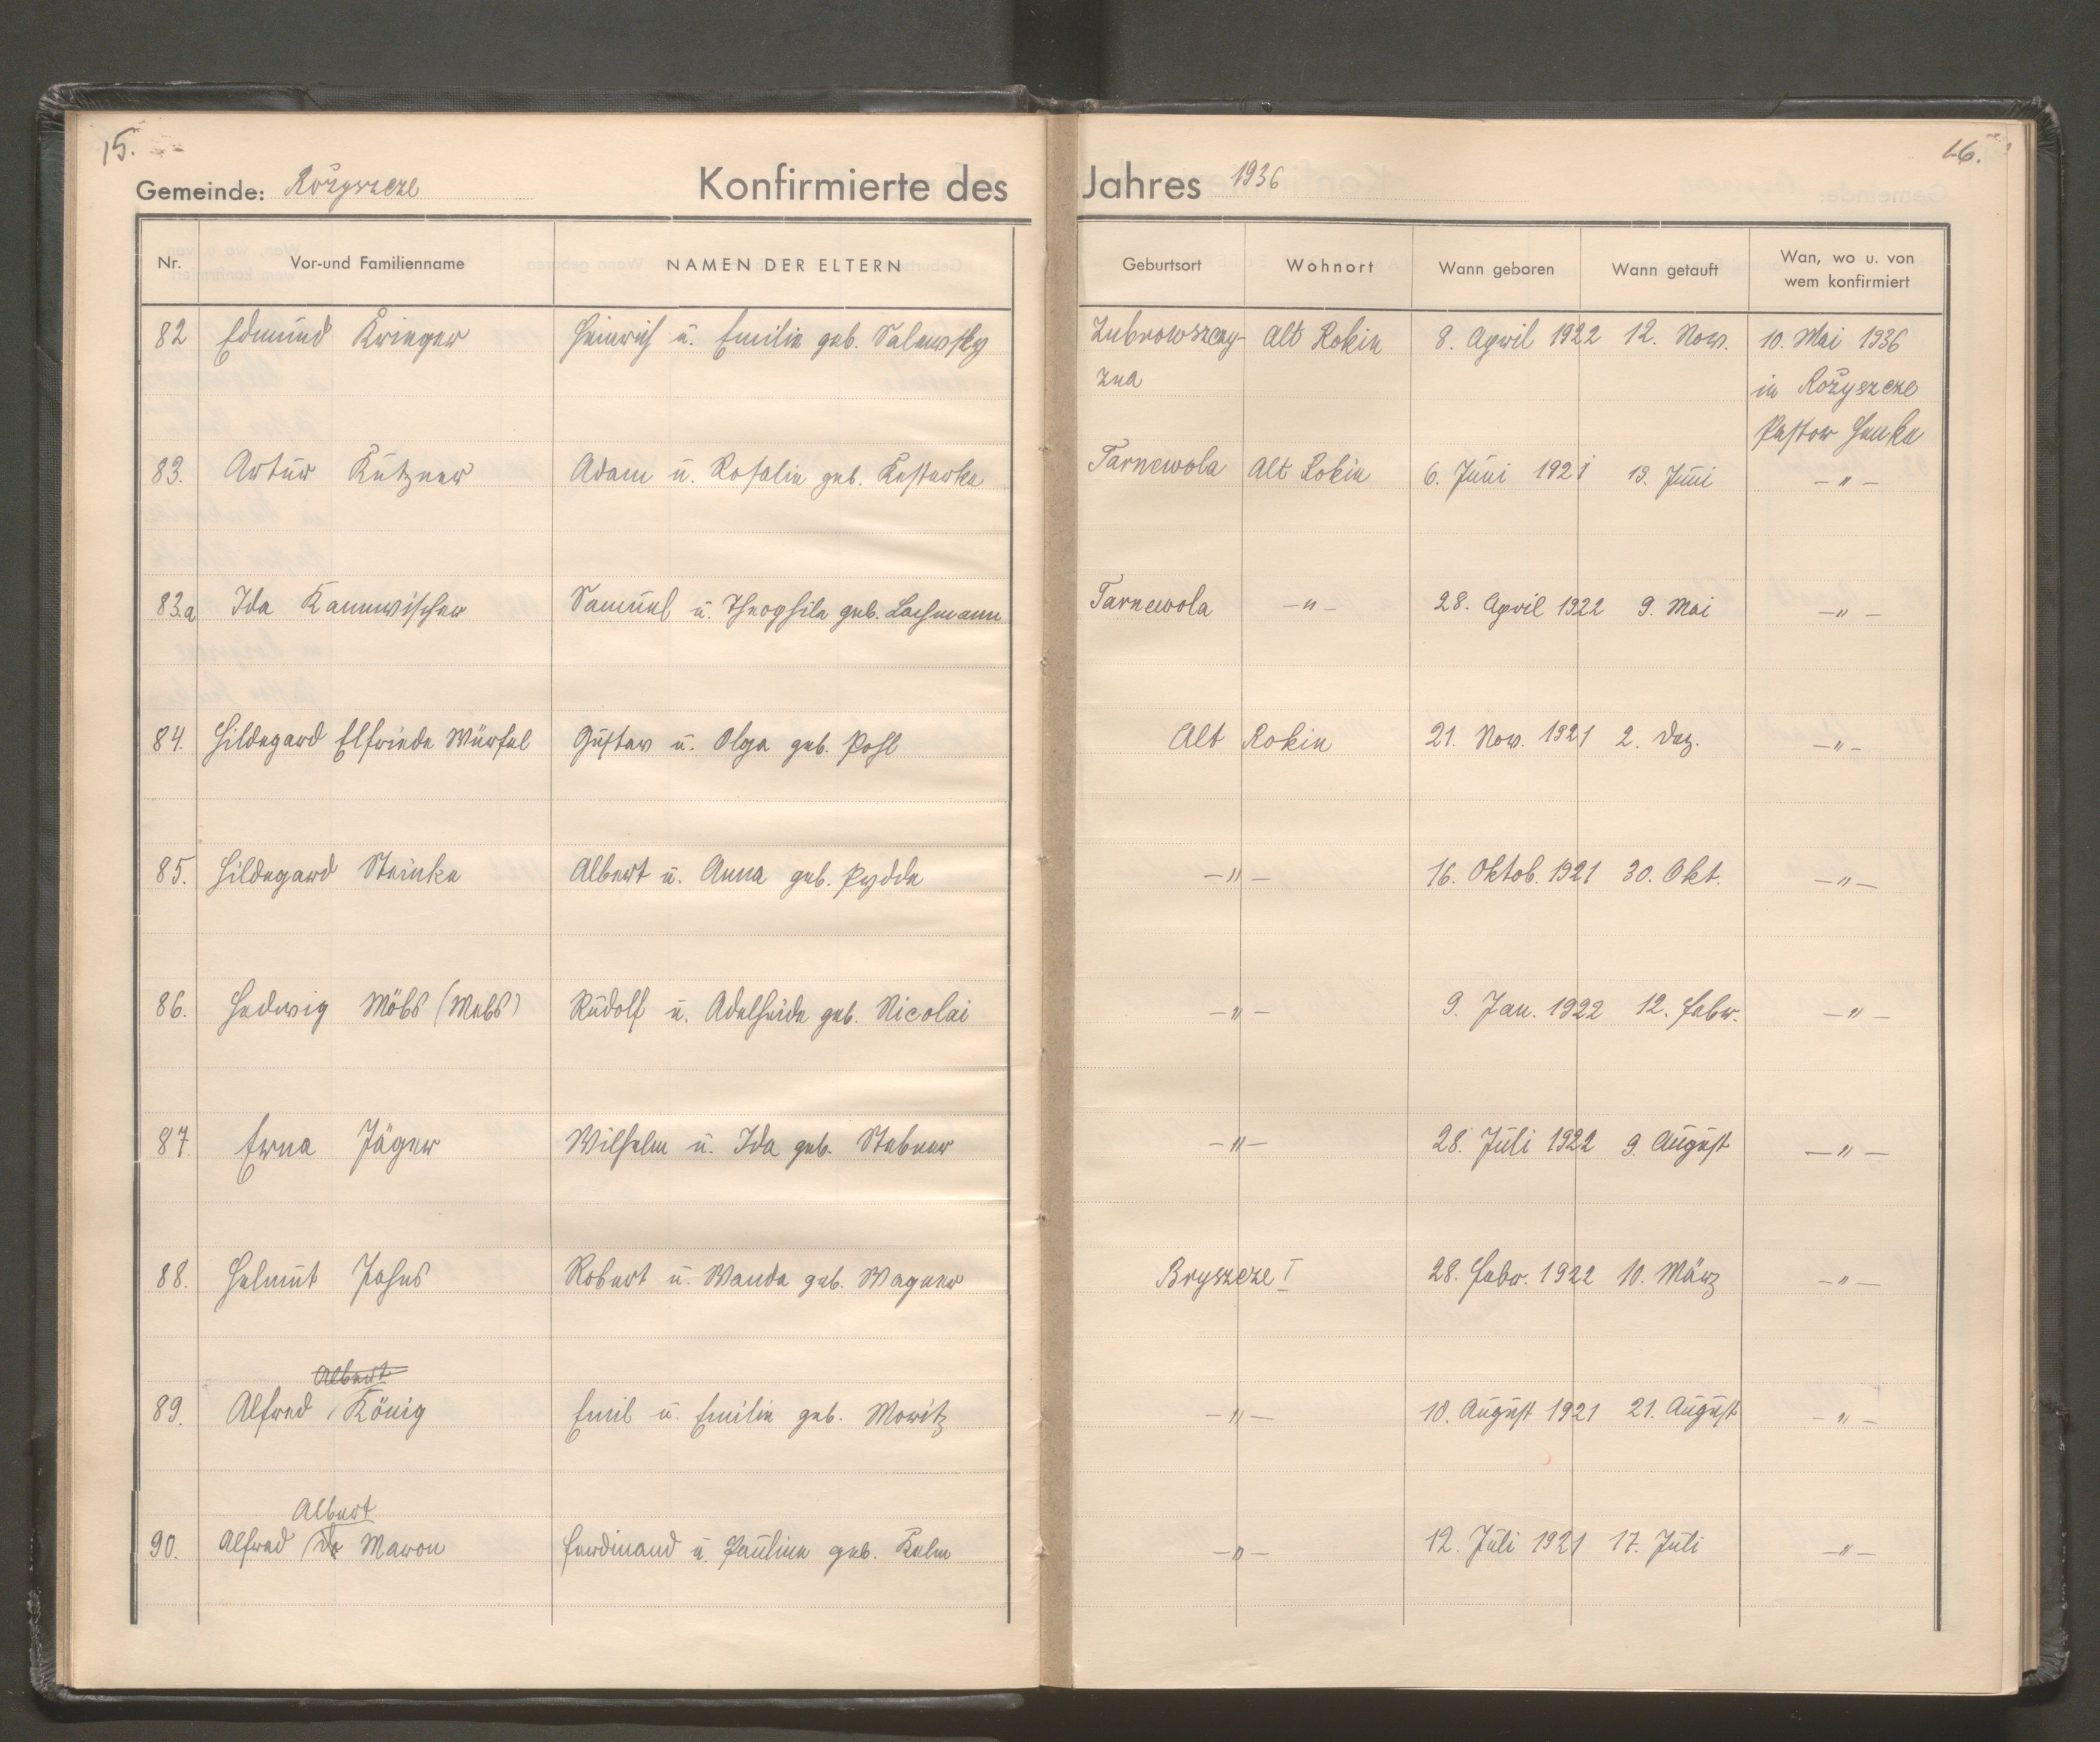 15.
Gemeinde: Rożyszcze Konfirmierte des Jahres 1936
16.
Nr. Vor-und Familienname NAMEN DER ELTERN Geburtsort Wohnort Wann geboren Wann getauft Wan, wo u. von
wem konfirmiert
82 Edmund Krieger Heinrich u. Emilie geb. Salewsky Zubrowszczy- Alt Rokin 8. April 1922 12. Nov. 10. Mai 1936
zna in Rożyszcze
Pastor Henke
83. Artur Kutzner Adam u. Rosalie geb. Tarnowola Alt Rokin 6. Juni 1921 13. Juni —"—
83.a Ida Kannwischer Samuel u. Theophile geb. Lachmann Tarnowola —"— 28. April 1922 9. Mai —"—
84. Hildegard Elfriede Würfel Gustav u. Olga geb. Pohl Alt Rokin 21. Nov. 1921 2. Dez. —"—
85. Hildegard Steinke Albert u. Anna geb. Pydde —"— 16. Oktob. 1921 30. Okt. —"—
86. Hedwig Möbs (Mebs) Rudolf u. Adelheide geb. Nicolai —"— 9. Jan. 1922 12. Febr. —"—
87 Erna Jäger Wilhelm u. Ida geb. Stebner —"— 28. Juli 1922 9. August —"—
88. Helmut Johns Robert u. Wanda geb. Wagner Bryszcze I 28. Febr. 1922 10. März —"—
Albert
89. Alfred König Emil u. Emilie geb. Moritz —"— 10. August 1921 21. August —"—
Albert
90. Alfred Maron Ferdinand u. Pauline geb. Kelm —"— 12. Juli 1921 17. Juli —"—